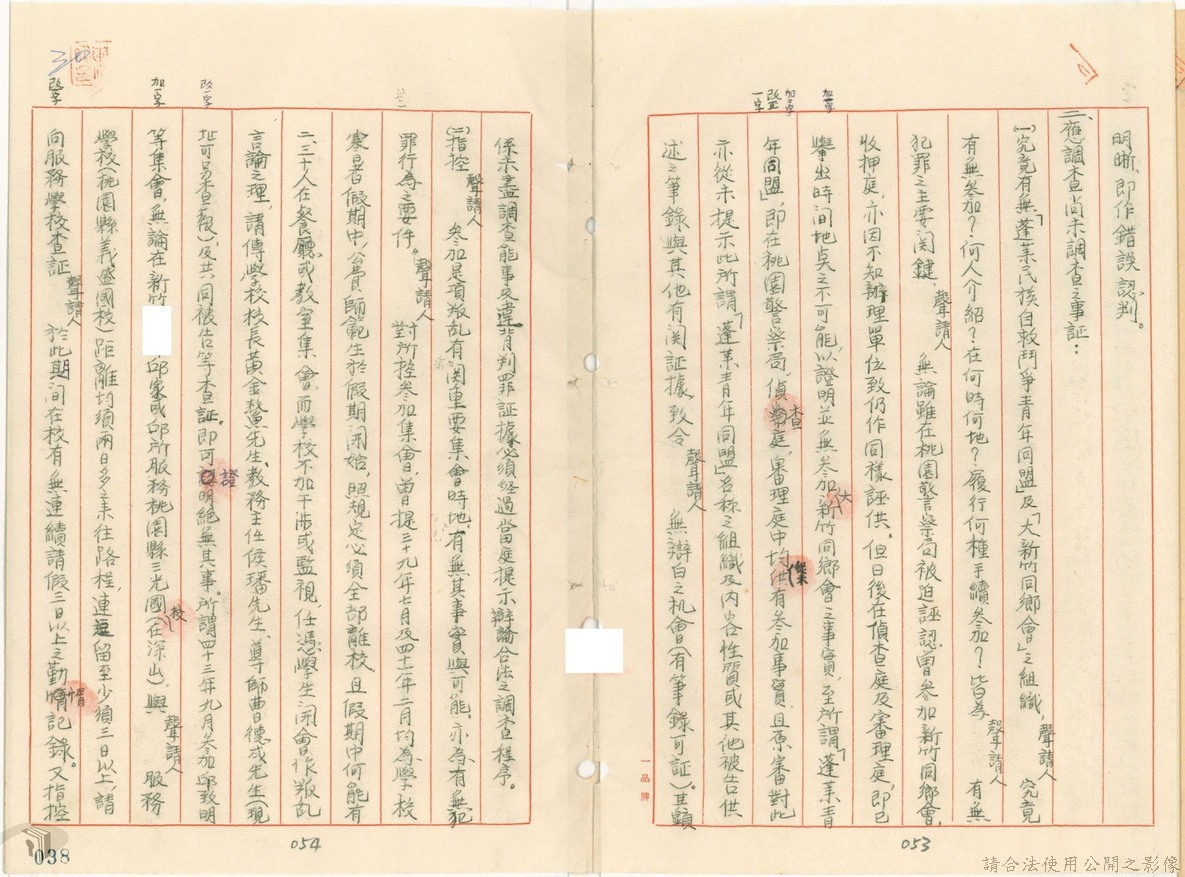 明晰、即作錯誤認判。
二、應調查尚未調查之事証：
(一)究竟有無「蓬萊民族自救鬥爭青年同盟」及「大新竹同鄉會」之組織，聲請人　究竟
有無參加？何人介紹？在何時何地？履行何種手續參加？皆為聲請人　有無
犯罪之主要関鍵，聲請人　無論雖在桃園警察局被迫誣認曾參加新竹同鄉會，
收押庭，亦因不知辦理單位致仍作同樣誣供。但日後在偵查庭及審理庭，即已
舉出時間地点之不可能，以證明並無參加大新竹同鄉會之事實，至所謂「蓬萊青
年同盟」，即在桃園警察局，偵查庭，審理庭中均從未供有參加事實，且原審對此
亦從未提示此所謂「蓬萊青年同盟」名称之組織及內容性質或其他被告供
述之筆錄與其他有関証據致令聲請人　無辯白之机會（有筆錄可証）。其顯
一品牌
053
係未盡調查能事及違背判罪証據必須経過當庭提示辯論合法之調查程序。
(二)指控聲請人　參加是項叛乱有関重要集會時地，有無其事實與可能，亦為有無犯
罪行為之要件。聲請人　對所控參加集會，曾提三十九年七月及四十一年二月均為學校
寒暑假期中，公費師範生於假期開始，照規定必須全部離校，且假期中何能有
二、三十人在餐廳或教室集會，而學校不加干涉或監視，任憑學生開會作叛乱
言論之理，請傳學校校長黃金鰲先生、教務主任侯璠先生、導師曹德成先生（現
址可另查報），及共同被告等查証。即可證明絕無其事。所謂四十三年九月參加邱致明
等集會，無論在新竹　邱家或邱所服務桃園縣三光國校（在深山），與聲請人　服務
學校（桃園縣義盛國校）距離均須兩日多之來往路程，連逗留至少須三日以上，請
向服務學校查証聲請人　於此期间在校有無連續請假三日以上之勤惰記錄。又指控
054
038
加二字
加二字
改一字
加一字
改一字
請合法使用公開之影像